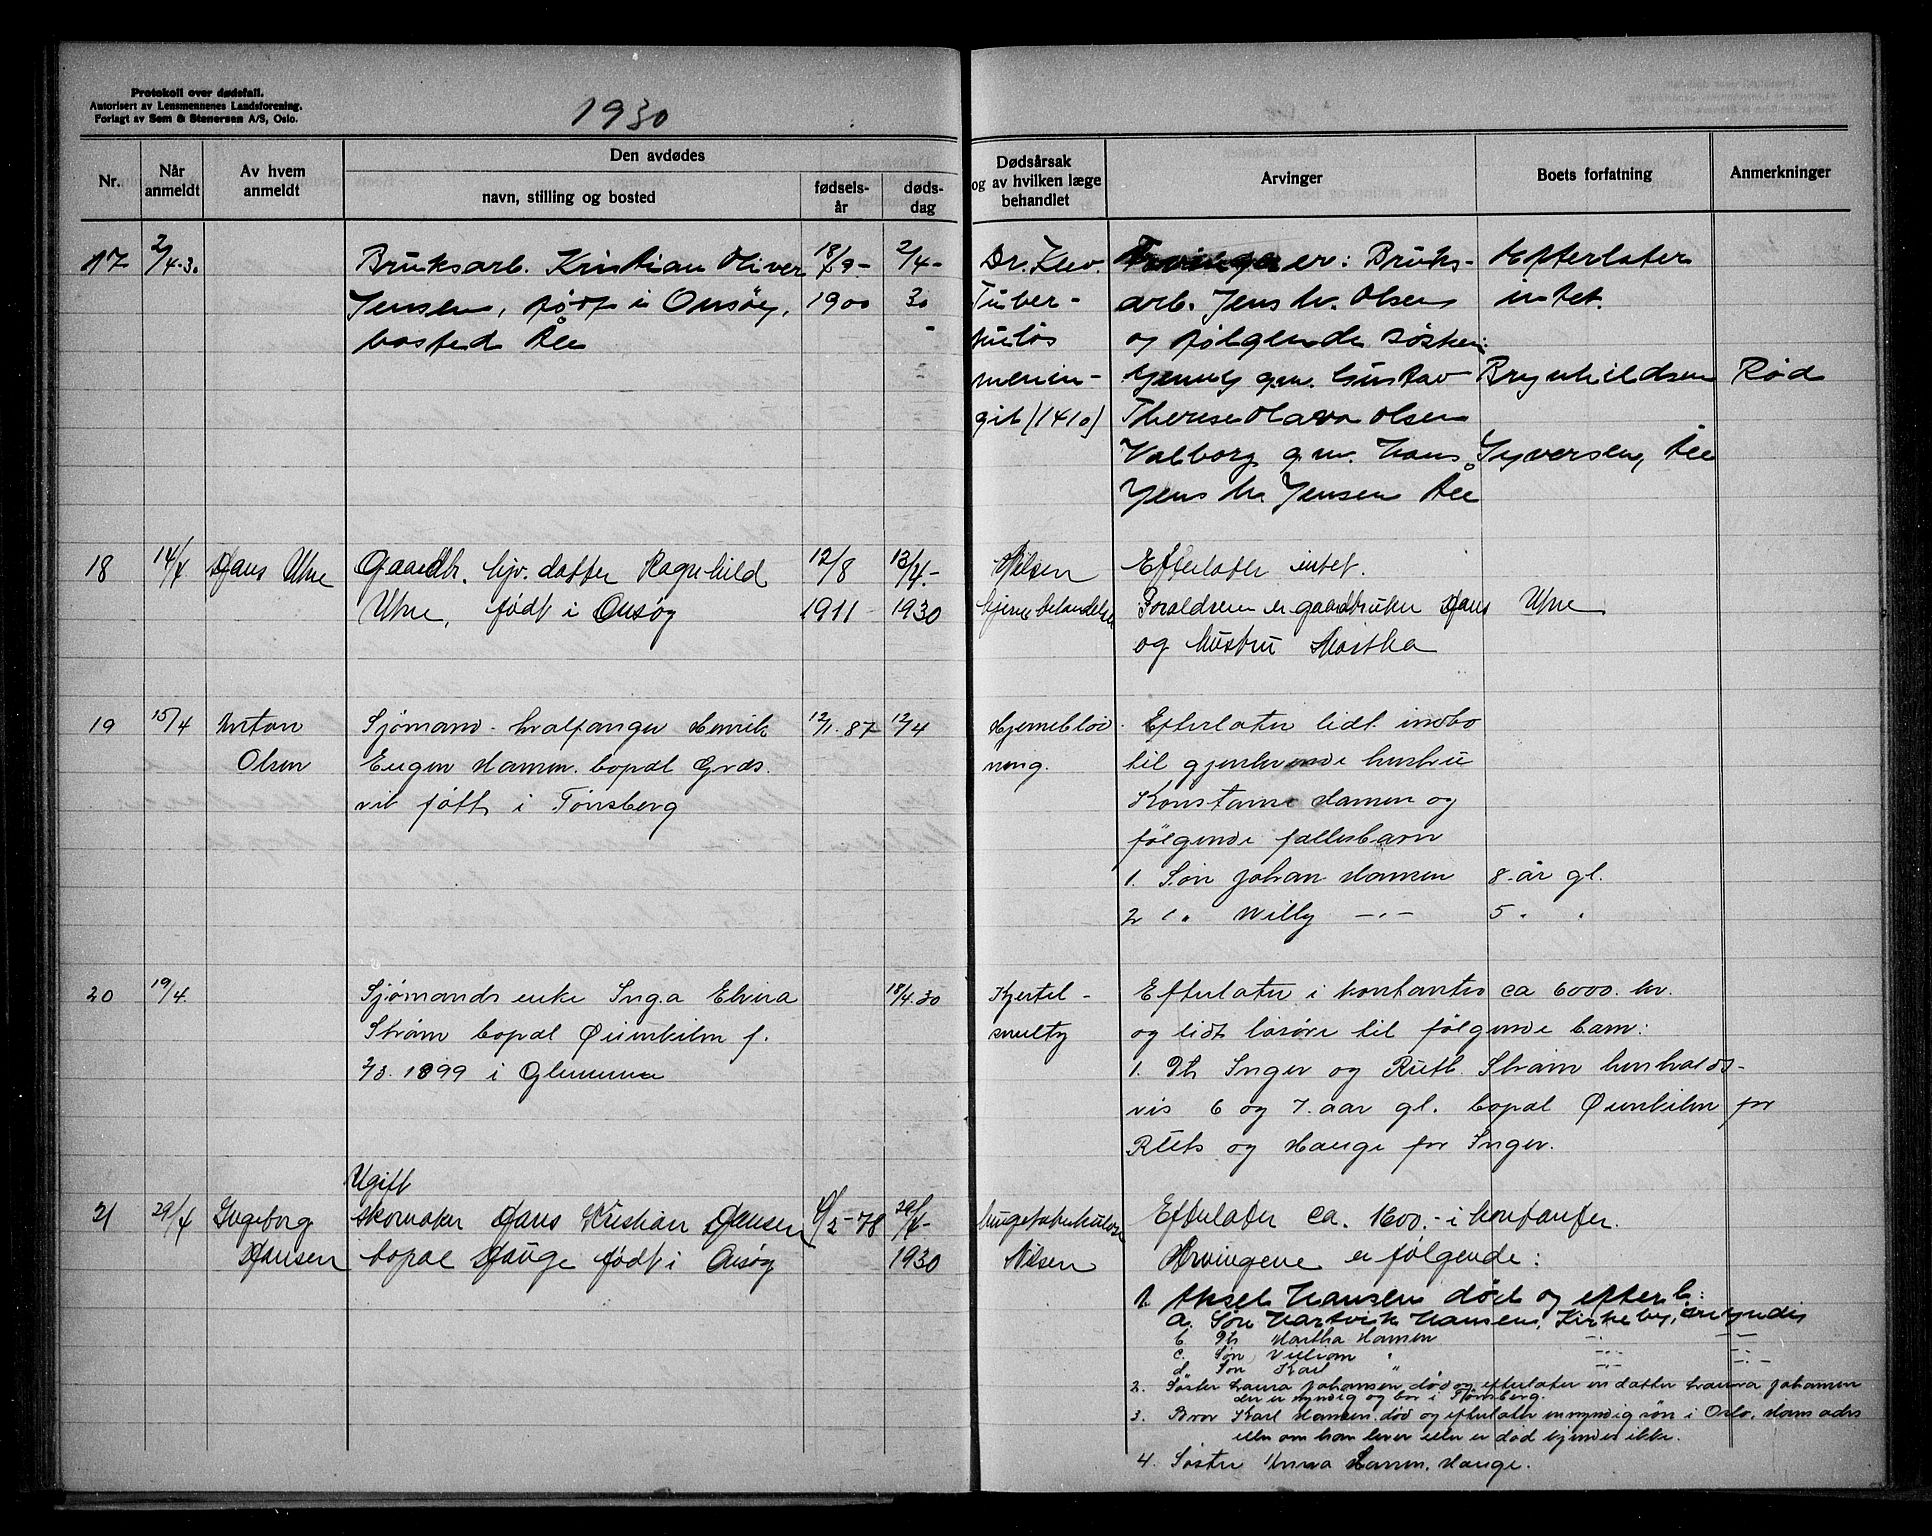 Protokoll over dødsfall.
Autorisert av Lensmennenes Landsforening.
Forlagt av Sem & Stenersen A/S, Oslo.
1930
Nr.
Når anmeldt
Av hvem anmeldt
Den avdødes
navn, stilling og bosted
fødselsår
dødsdag
Dødsårsak og av hvilken læge behandlet
Arvinger
Boets forfatning
Anmerkninger
17 2/4-30 Bruksarb. Kristian Oliver 18/9- 2/4-
Jensen, født i Onsøy, 1900 30
bosted Åle
Dr. Klev. er: Bruks- Efterlater
Tuber- arb. Jens Kr. Olsen intet.
kuløs og følgende søsken:
menin- Jenny g.m. Gustav Brynhildsen Rød
git (1410) Therese Olava Olsen
Valborg g.m. Hans Syversen, Åle
Jens Kr Jensen Åle
18 14/4 Hans Utne Gaardbr. hjv. datter Ragnhild 12/8 13/4.-
Utne, født i Onsøy 1911 1930
Nilsen Efterlater intet.
Foreldrene er gaardbruker Hans Utne
og hustru Martha
19 15/4 Anton Sjømand- hvalfanger Henrik 12/1. 87 12/4
Olsen Eugen Hansen. bopæl Græs-
vik født i Tønsberg
Hjerneblød- Efterlater lidt indbo
ning. til gjenlevende hustru
Konstanse Hansen og
følgende fællesbarn
1. Søn Johan Hansen 8 år gl.
2 " Willy -"- 5 " "
20 19/4. Sjømands enke Inga Elvira 18/4.30
Strøm bopæl Øienkilen f.
2/3. 1899 i Glemmen
Kjertel- Efterlater i kontanter ca 6000. kr.
svulty og lidt løsøre til følgende barn:
1. Dtr Inger og Ruth Strøm henholds-
vis 6 og 7. aar gl. bopæl Øienkilen for
Ruth og Hauge for Inger.
Ugift
21 29/4 Ingeborg skomaker Hans Kristian Hansen 4/2-78 29/4-
Hansen bopæl Hauge født i Onsøy 1930
lungetuberkulose Efterlater ca. 1600.- i kontanter.
Nilsen Arvingene er følgende:
1. Aksel Hansen død og efterl:
a. Søn Hartvik Hansen, Kirkeby, er myndig
b Dtr Martha Hansen -"- -"-
c. Søn William " -"- -"-
d. Søn Karl " -"- -"-
2. Søster Laura Johansen død og efterlater en datter Laura Johansen
den er myndig og bor i Tønsberg.
3. Bror Karl Hansen. død og efterlater en myndig søn i Oslo. Hans adrs
eller om han lever eller er død kjendes ikke.
4. Søster Anna Hansen. Hauge.